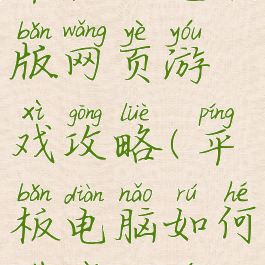 bǎn wǎng yè yóu
版网页游
xì gōng lüè píng
戏攻略(平
bǎn diàn nǎo rú hé
板电脑如何